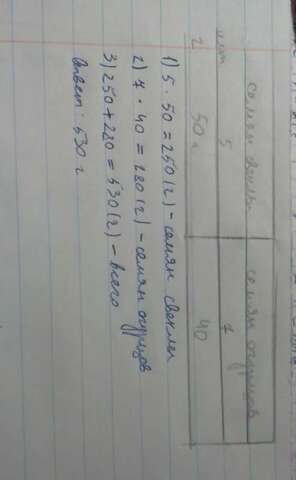 семян свеклы семян огурцов
5 7
г 50 г 40
1) 5 · 50 = 250 (г) - семян свеклы
2) 7 · 40 = 280 (г) - семян огурцов
3) 250 + 280 = 530 (г) - всего
Ответ: 530 г